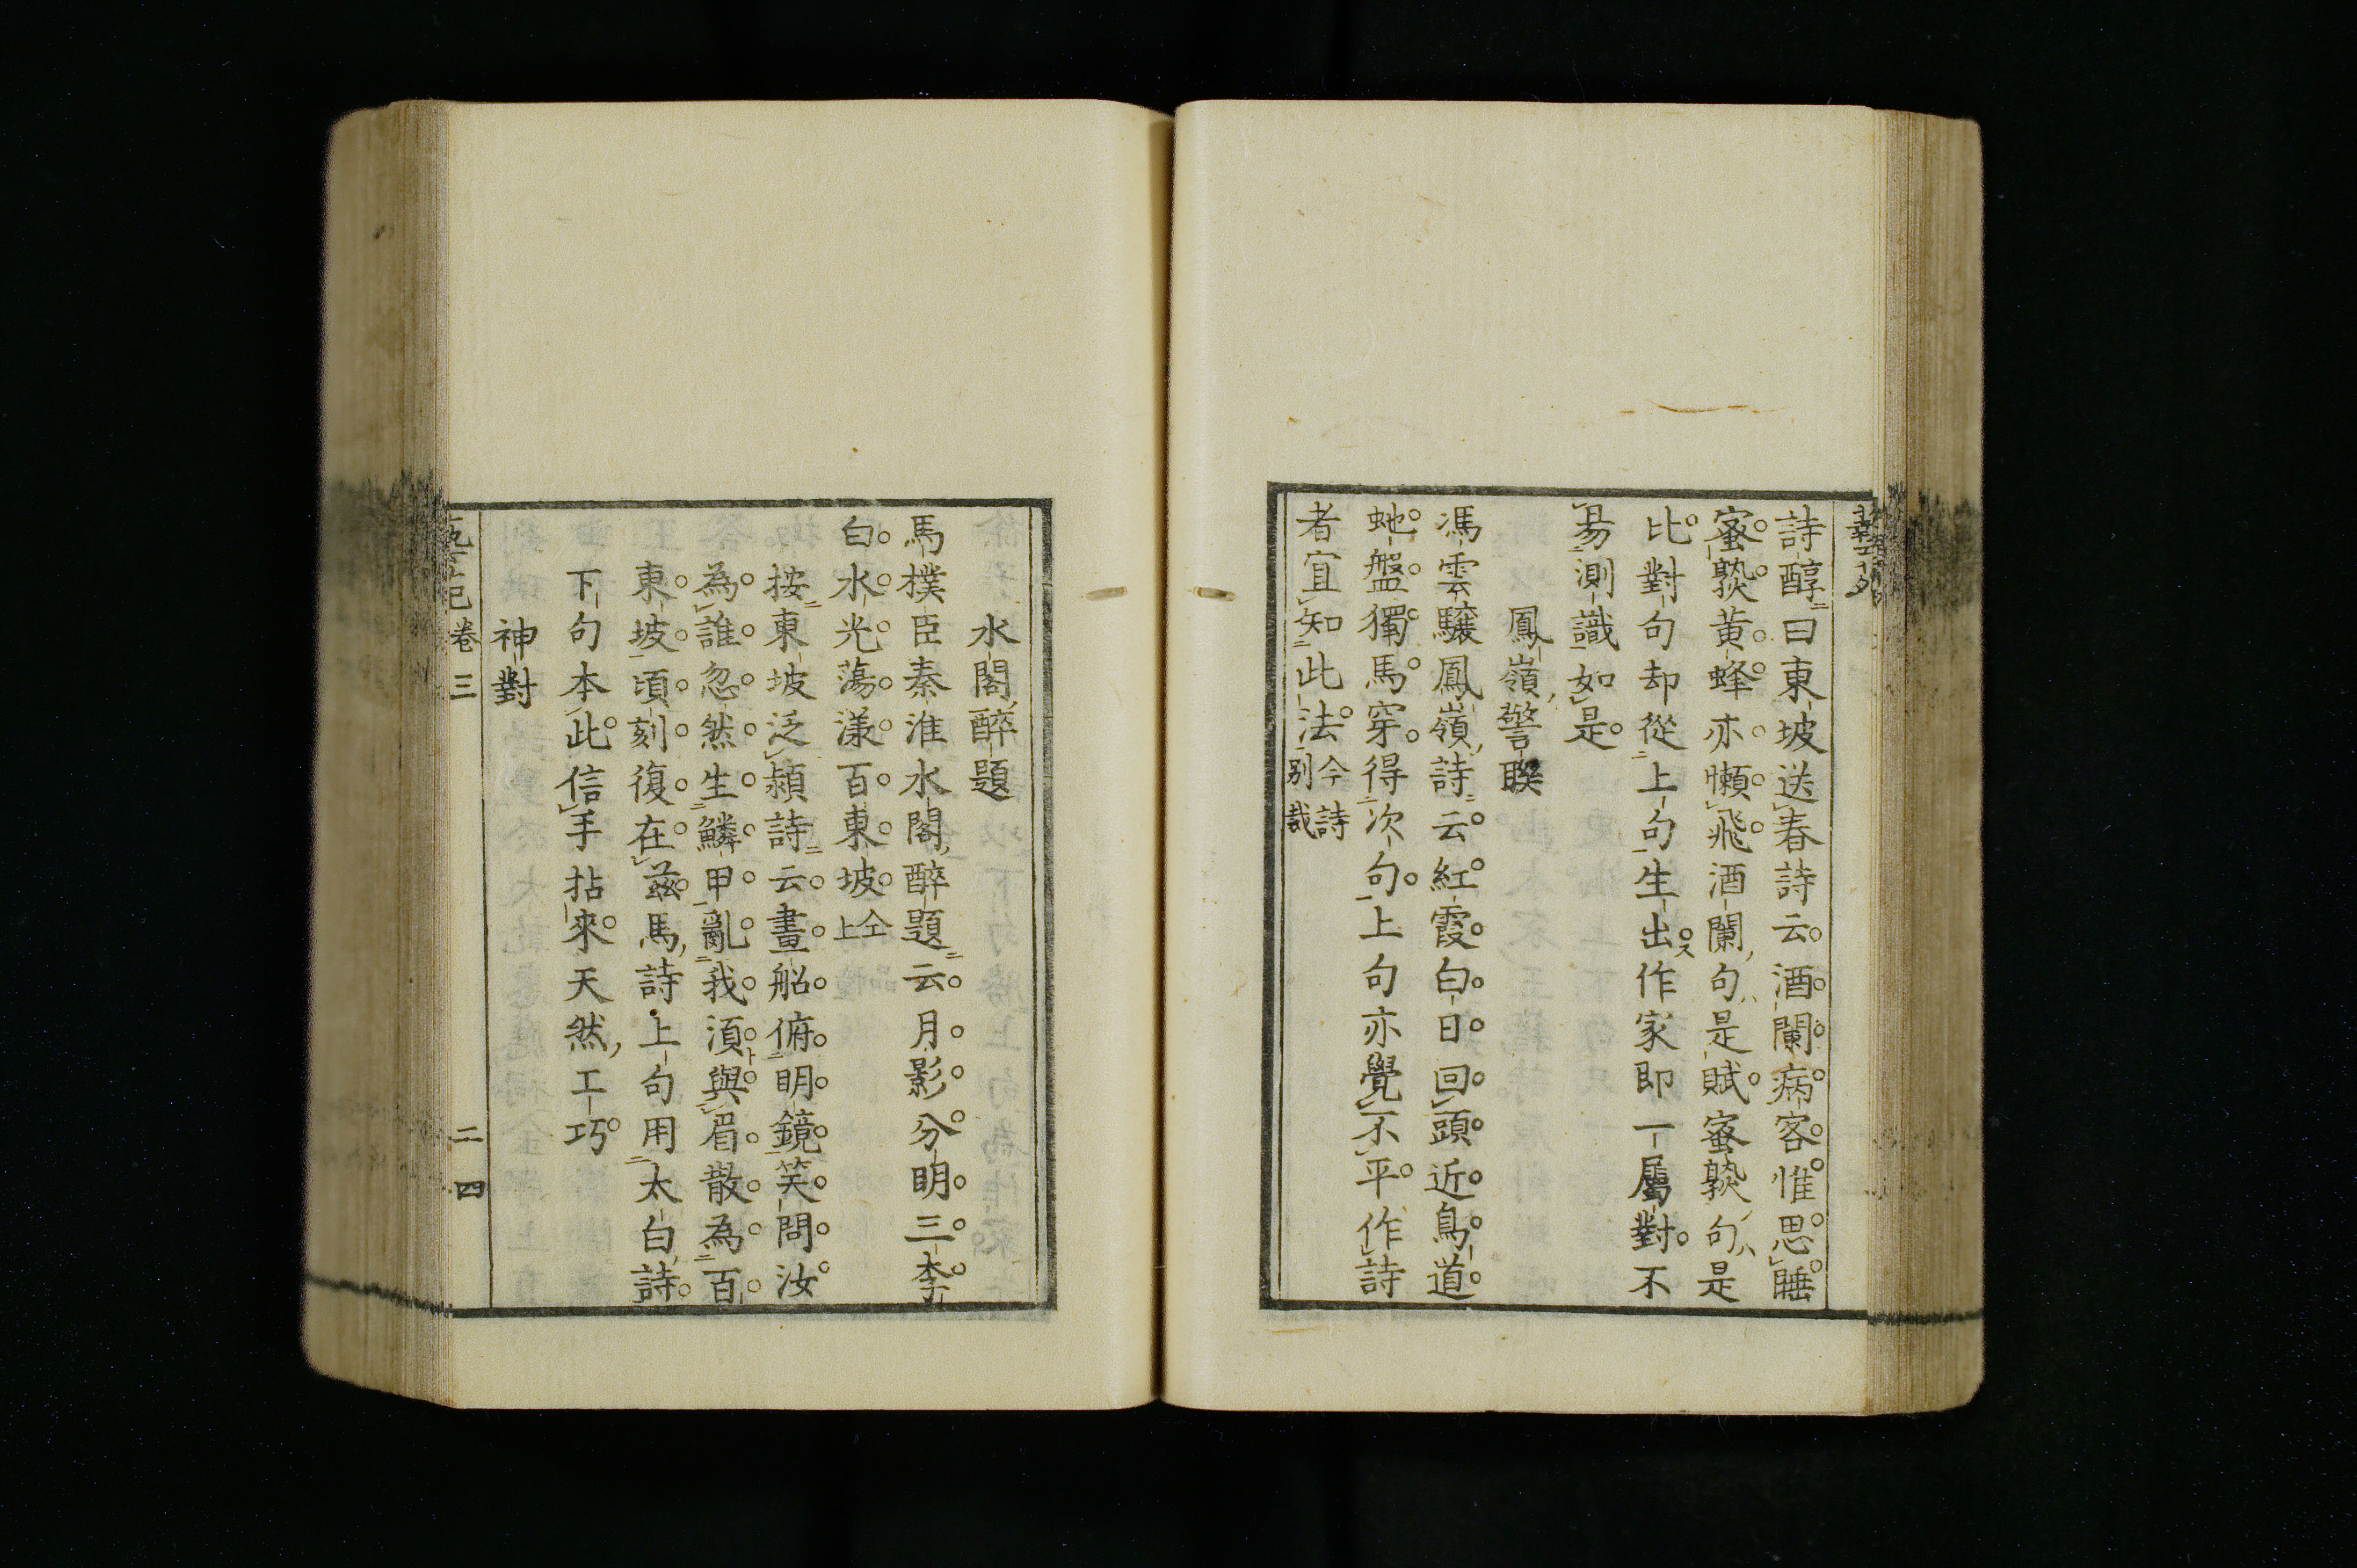 詩醇曰東坡送春詩云酒闌病客惟思睡
蜜熟黃蜂亦懶飛酒闌句是賦蜜熟句是
比對句却從上句生出又作家即一屬對不
易測識如是
鳳嶺警聯
馮雲驤鳳嶺詩云紅霞白日回頭近鳥道
虵盤獨馬穿得次句上句亦覺不平作詩
者宜知此法今詩別裁
水閣醉題
馬樸臣秦淮水閣醉題云月影分明三李
白水光蕩漾百東坡仝上
按東坡泛潁詩云畫船俯明鏡笑問汝
為誰忽然生鱗甲亂我湏與眉散為百
東坡頃刻復在茲馬詩上句用太白詩
下句本此信手拈來天然工巧
神對
卷三
二四